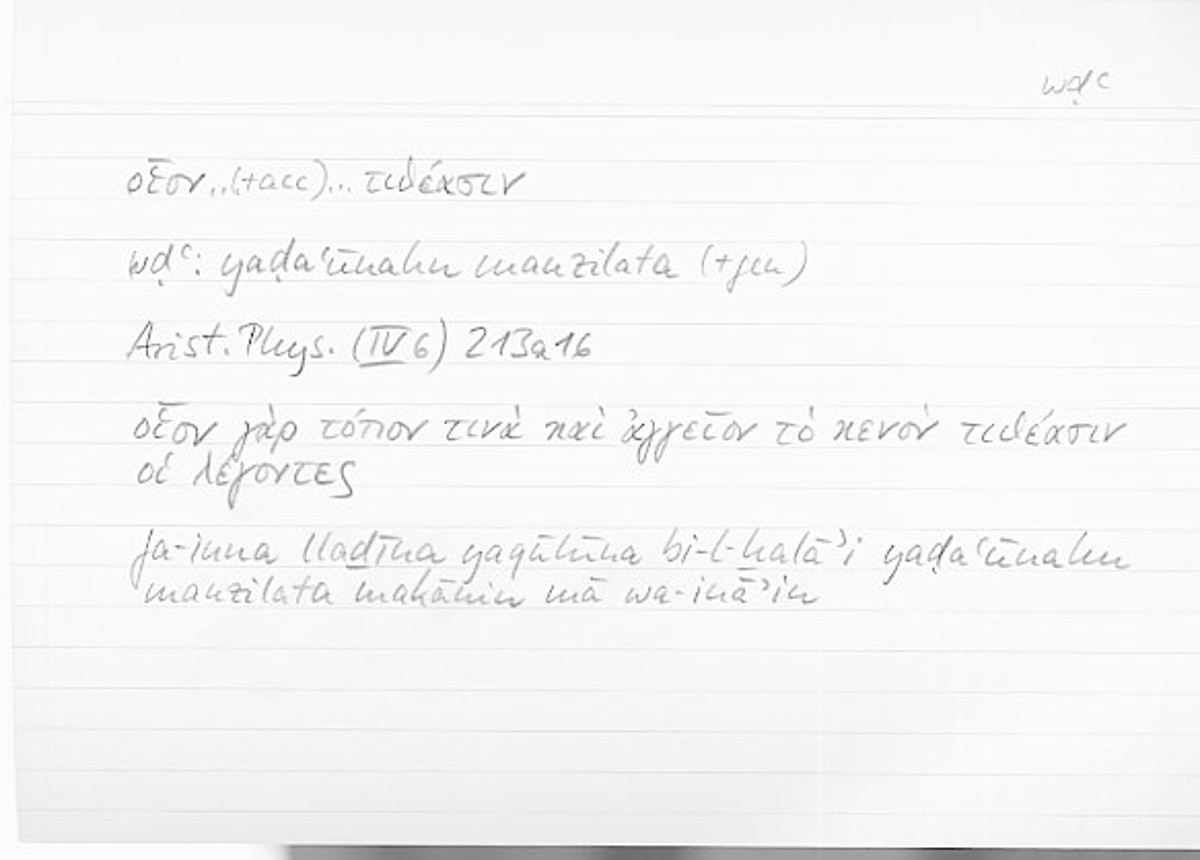 wḍʿ
οἷον..(+acc)... τιθέασιν
wḍʿ: yaḍaʿūnahu manzilata (+gen)
Arist. Phys. (IV 6) 213a16
οἷον γὰρ τόπον τινὰ καὶ ἀγγεῖον τὸ κενὸν τιθέασιν
οἱ λέγοντες
fa-inna llaḏīna yaqūlūna bi-l-ḫalāʾi yaḍaʿūnahu
manzilata makānin mā wa-ināʾin